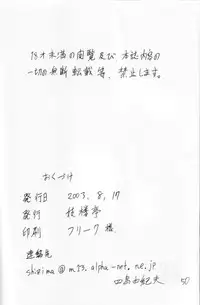 18才未満の閲覧及び本誌内容の
一切の無断転載等、禁止します。
おくづけ
発行日 2003.8.17
発行 桂樓亭
印刷 フリーク様
連絡先
shizima@m23.alpha-net.ne.jp
由紀夫
50